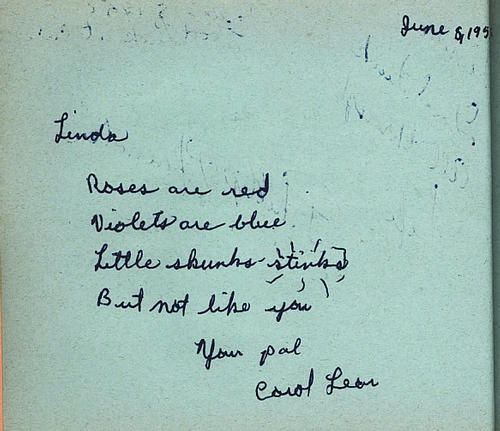 June 8, 195
Linda
Roses are red
Violets are blue
Little skunks stinks
But not like you
Your pal
Carol Lear